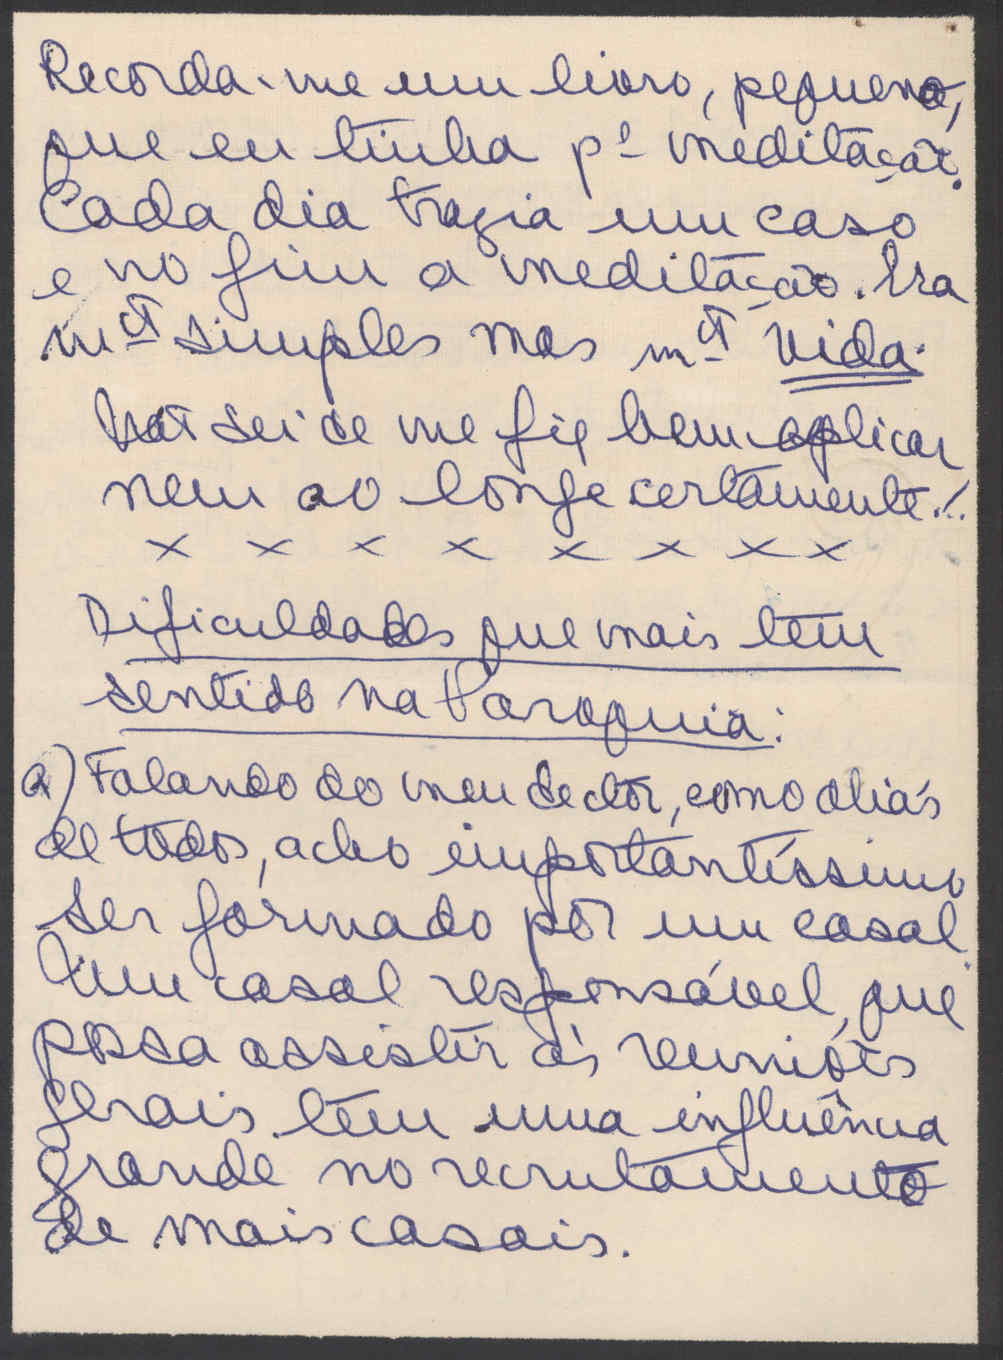 Recorda-me um livro, pequeno,
que eu tinha pª meditação.
Cada dia trazia um caso
e no fim a meditação. Era
mᵗᵒ simples mas mᵗᵃ vida.
Não sei se me fiz bem explicar
nem ao longe certamente!..
x x x x x x x x
Dificuldades que mais tem
sentido na Paroquia:
a) Falando do meu Sector, como aliás
de todos, acho importantíssimo
ser formado por um casal.
Um casal responsável, que
possa assistir ás reuniões
gerais tem uma influência
grande no recrutamento
de mais casais.